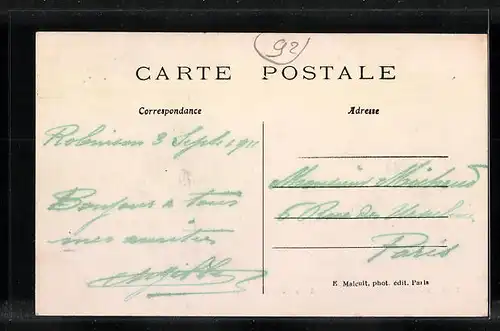 92
CARTE POSTALE
Correspondance
Adresse
Robinson 3 Sept 1911
Bonjour à tous
mes amitiés
Monsieur Michaud
6 Rue des
Paris
E. Malcuit, phot. édit. Paris